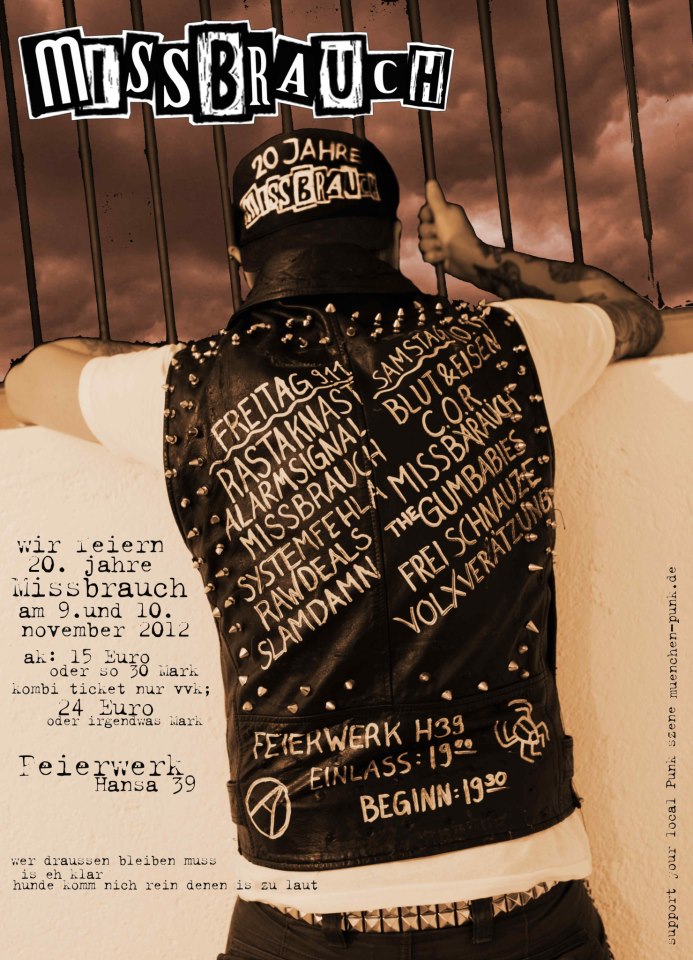 MISSBRAUCH
20 JAHRE
MISSBRAUCH
FREITAG 9.11
RASTAKNAST
ALARMSIGNAL
MISSBRAUCH
SYSTEMFEHLA
RAWDEALS
SLAMDAMN
SAMSTAG 10.11
BLUT & EISEN
C.O.R.
MISSBARAUCH
THE GUMBABIES
FREI SCHNAUZE
VOLXVERÄTZUNG
FEIERWERK H39
EINLASS: 19 00
BEGINN: 19 30
wir feiern
20. jahre
Missbrauch
am 9.und 10.
november 2012
ak: 15 Euro
oder so 30 Mark
kombi ticket nur vvk;
24 Euro
oder irgendwas Mark
Feierwerk
Hansa 39
wer draussen bleiben muss
is eh klar
hunde komm nich rein denen is zu laut
support your local Punk szene muenchen-punk.de